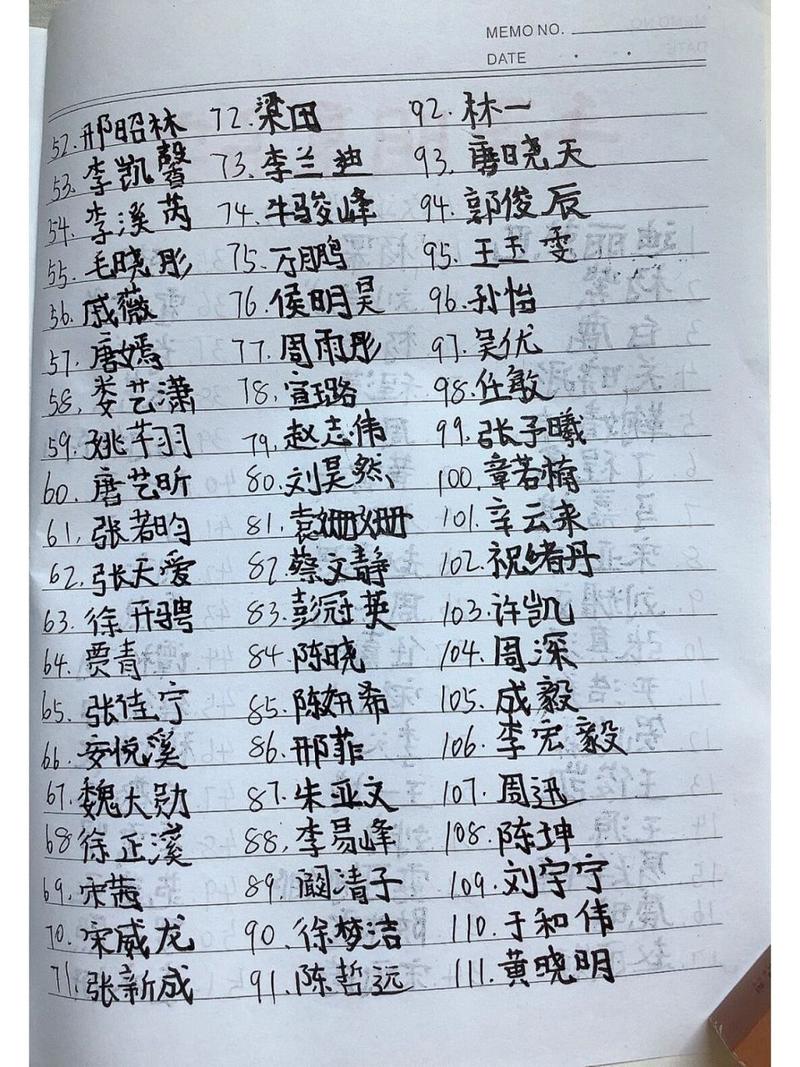 MEMO NO.
DATE
52. 邢昭林
53. 李凯馨
54. 李溪芮
55. 毛晓彤
56. 戚薇
57. 唐嫣
58. 娄艺潇
59. 姚芊羽
60. 唐艺昕
61. 张若昀
62. 张天爱
63. 徐开骋
64. 贾青
65. 张佳宁
66. 安悦溪
67. 魏大勋
68 徐正溪
69. 宋茜
70. 宋威龙
71. 张新成
72. 梁田
73. 李兰迪
74. 牛骏峰
75. 万鹏
76. 侯明昊
77. 周雨彤
78. 宣璐
79. 赵志伟
80. 刘昊然
81. 袁姗姗
82. 蔡文静
83. 彭冠英
84. 陈晓
85. 陈妍希
86. 邢菲
87. 朱亚文
88. 李易峰
89. 阚清子
90. 徐梦洁
91. 陈哲远
92. 林一
93. 唐晓天
94. 郭俊辰
95. 王玉雯
96. 孙怡
97. 吴优
98. 任敏
99. 张予曦
100. 章若楠
101. 辛云来
102. 祝绪丹
103. 许凯
104. 周深
105. 成毅
106. 李宏毅
107. 周迅
108. 陈坤
109. 刘宇宁
110. 于和伟
111. 黄晓明